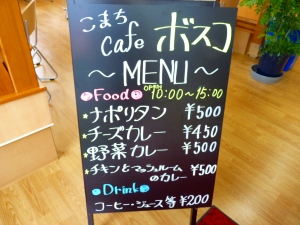 こまち
cafe ボスコ
～MENU～
Food OPEN 10:00～15:00
★ナポリタン ¥500
★チーズカレー ¥450
★野菜カレー ¥500
★チキンとマッシュルーム
のカレー ¥500
Drink
コーヒー・ジュース等 ¥200